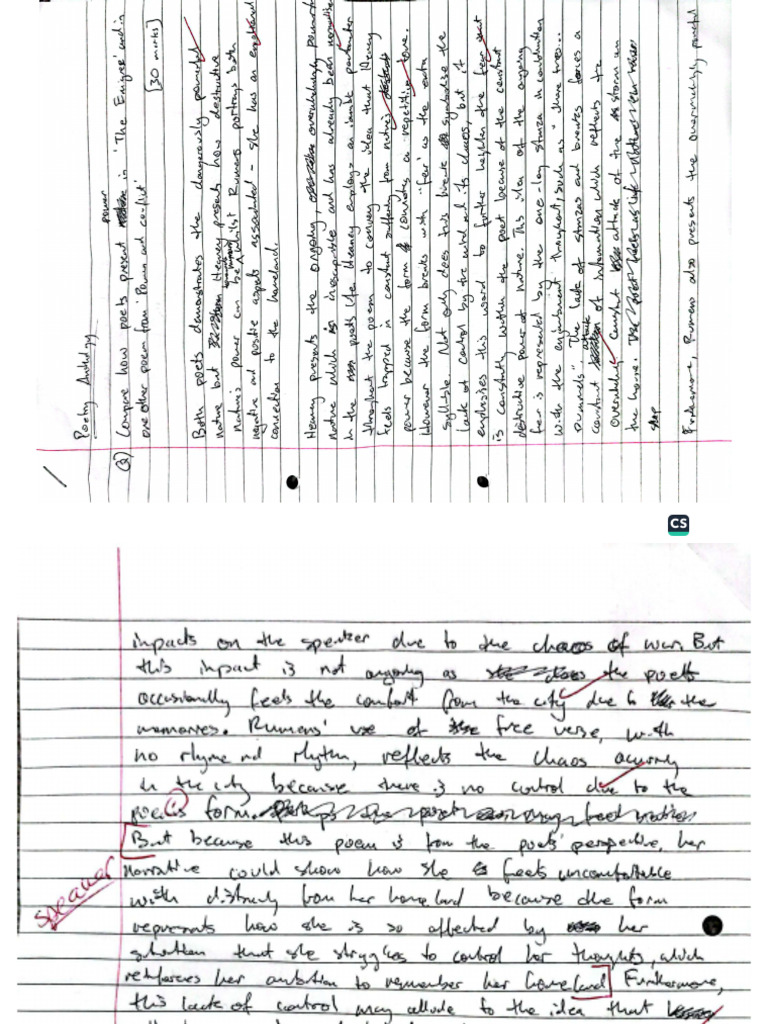 Poetry Anthology
power
Q) Compare how poets present in 'The Emigree' and in
one other poem from 'Power and conflict'
[30 marks]
Both poets demonstrates the dangerously powerful
nature but Heaney presents how destructive
nature's power can be whilst Rumens portrays both
negative and positive aspects - she has an emotional
connection to the homeland.
Heaney presents the ongoing, overwhelmingly powerful
nature which is and has already been
in the poets life. Heaney employs an iambic pentameter
throughout the poem to convey the idea that Heaney
feels trapped in constant from nature's
power because the form connotes a repetitive tone.
However the form breaks with "fear" as the extra
syllable. Not only does this break symbolise the
lack of control by the wind and its chaos, but it
emphasises this word to further heighten the fear that
is constantly within the poet because of the constant
destructive power of nature. This idea of the ongoing
fear is represented by the one-long stanza in combination
with the enjambment throughout, such as "there are...
The lack of stanzas and breaks forces a
constant attack of information which reflects the
constant attack of the storm on
the home.
Furthermore, Rumens also presents the overwhelmingly powerful
CS
impacts on the speaker due to the chaos of war. But
this impact is not ongoing as the poets
occassionally feels the comfort from the city due to the
memories. Rumens' use of free verse, with
no rhyme nd rhythm, reflects the chaos
in the city because there is no control due to the
form.
But because this poem is from the poets' perspective, her
speaker
narrative could show how she feels uncomfortable
with from her homeland because the form
represents how she is so affected by her
situation that she struggles to control her thoughts, which
reinforces her ambition to remember her homeland. Furthermore,
this lack of control may allude to the idea that